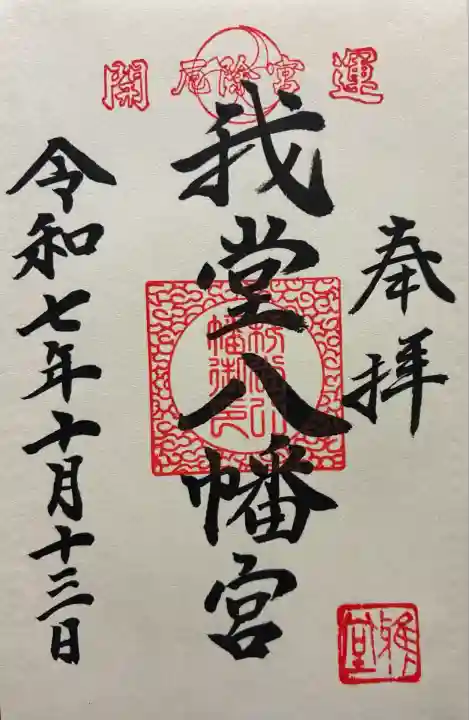 運 厄除宮 開
奉拝
我堂八幡宮
令和七年十月十三日
雅堂